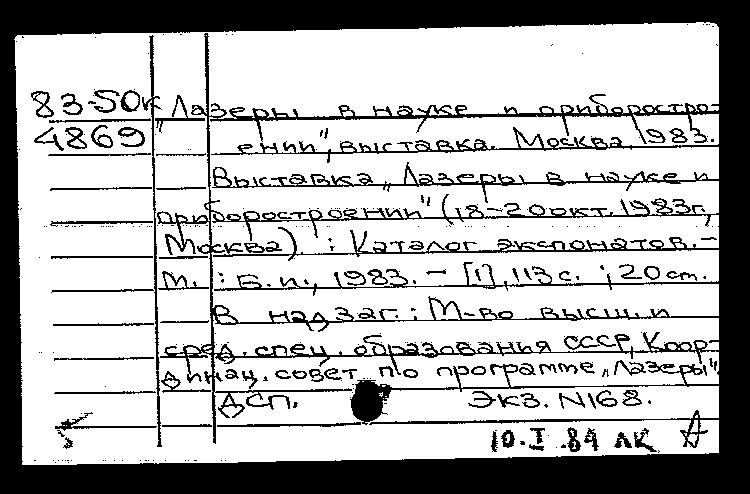 83-50к Лазеры в науке и приборостро-
4869 " ении", выставка. Москва, 1983.
Выставка „Лазеры в науке и
приборостроении" (18-20 окт. 1983г.,
Москва). : Каталог экспонатов. -
М. : Б. и., 1983. - [1], 113 с. ; 20 см.
В надзаг.: М-во высш. и
сред. спец. образования СССР, Коор-
динац. совет по программе „Лазеры".
ДСП. Экз. N168.
10.I.84 ЛК